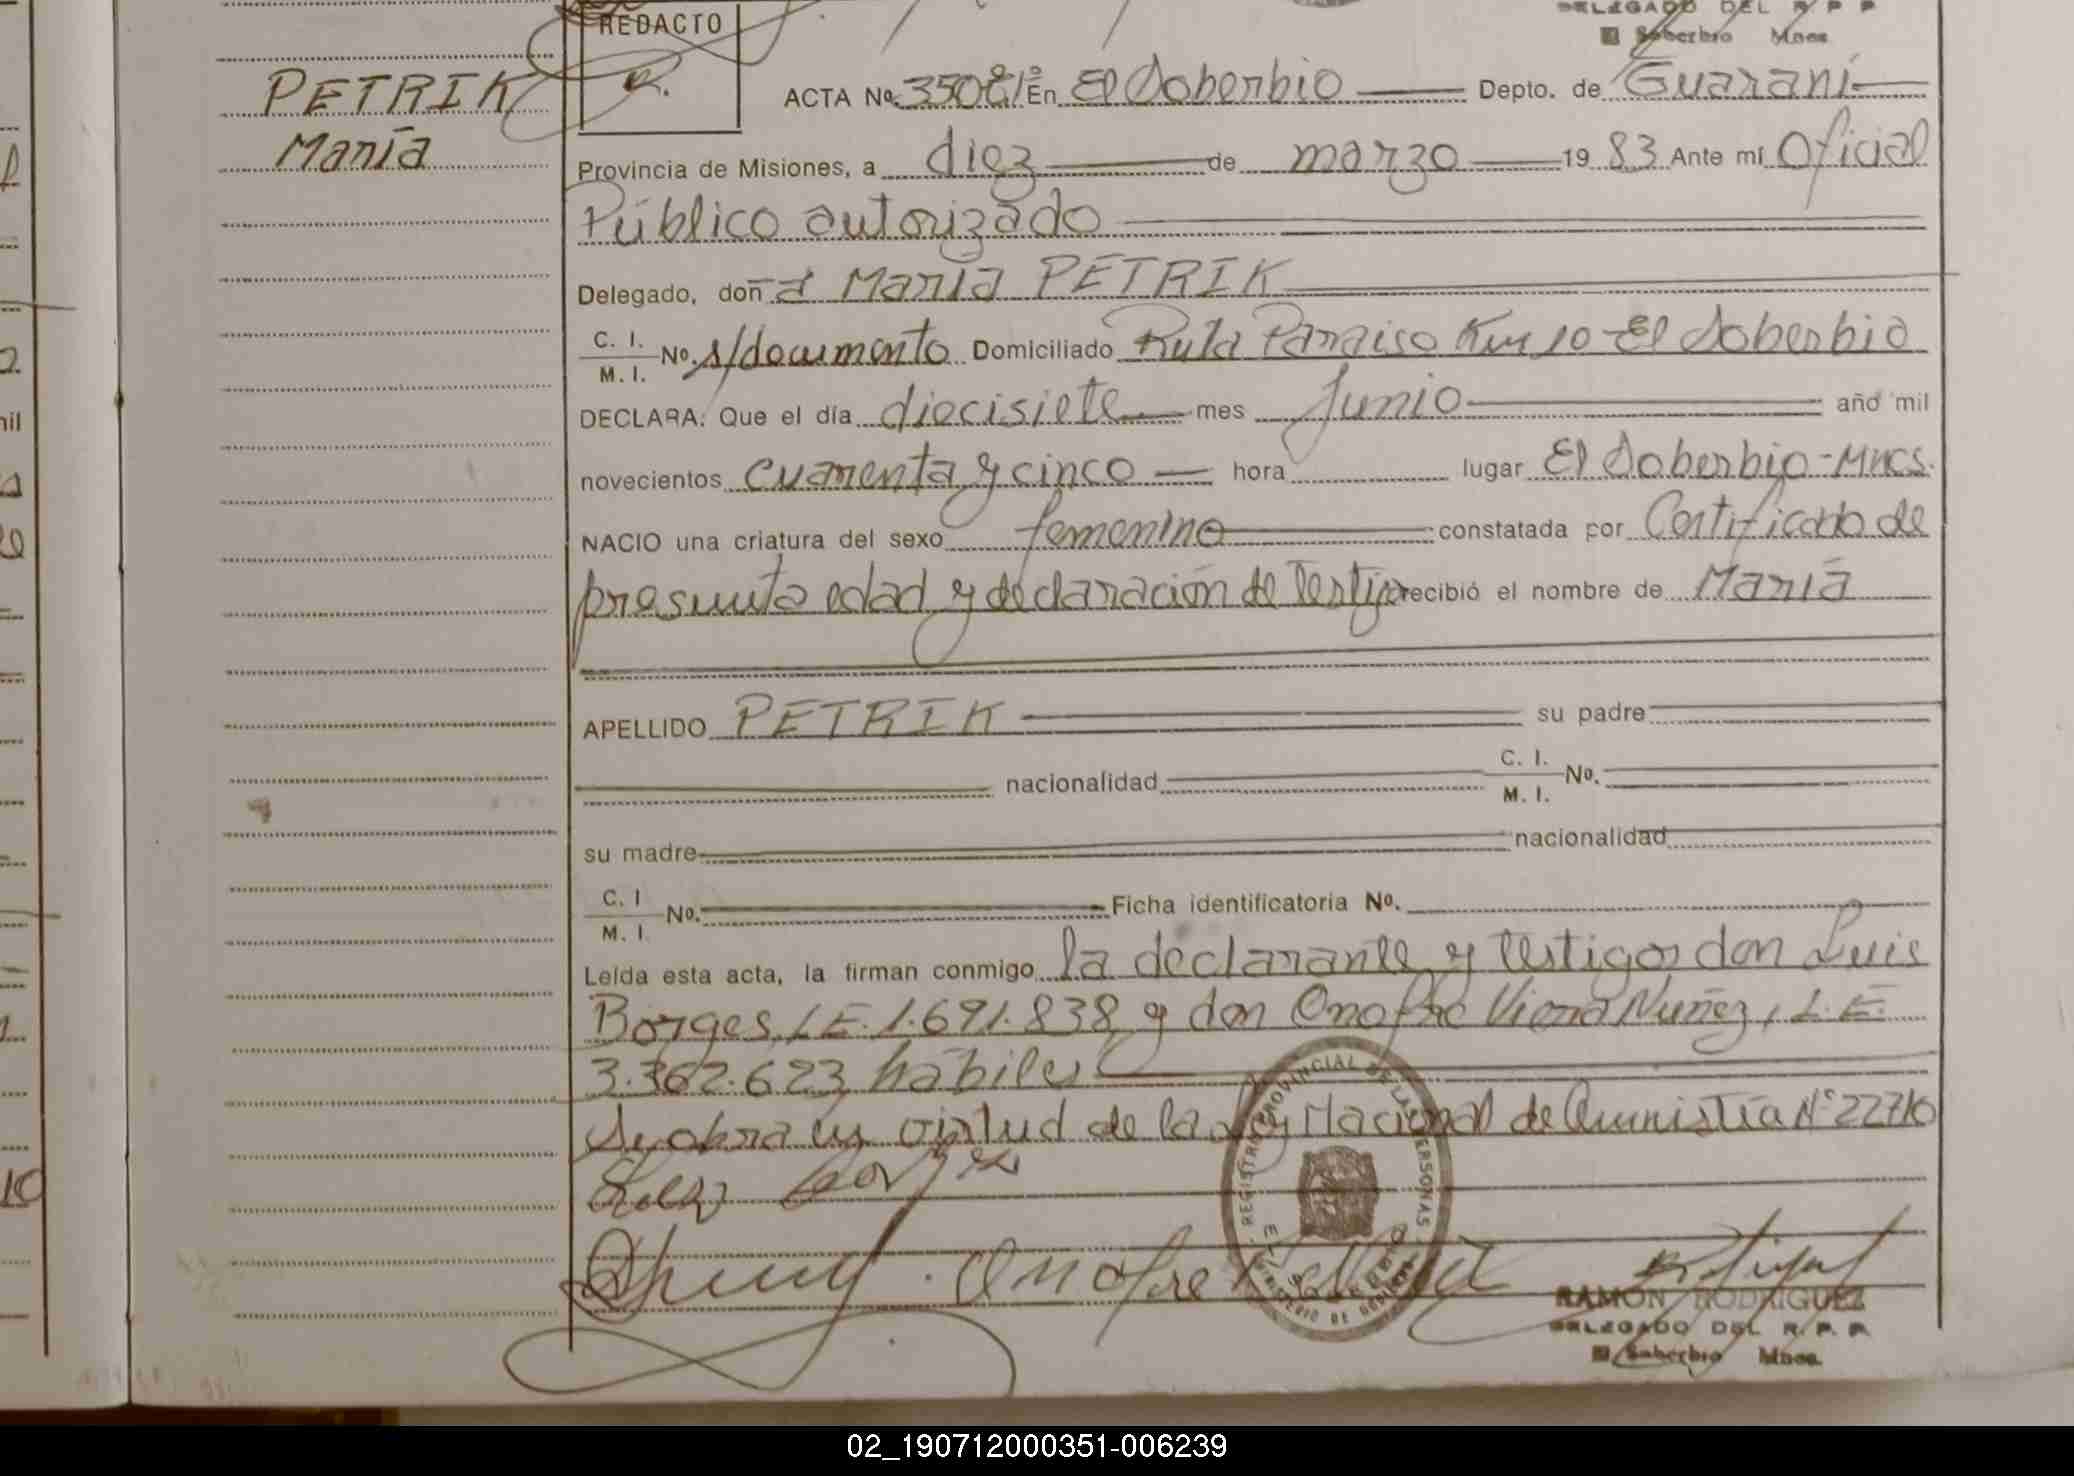 DELEGADO DEL R P P
El Soberbio Mnes
REDACTO
R.
PETRIK
María
ACTA No. 350 En El Soberbio Depto. de Guaraní
Provincia de Misiones, a diez de marzo 19 83 Ante mí Oficial
Público autorizado
Delegado, doña María PETRIK
C. I.
M. I. No. s/documento Domiciliado Ruta Paraiso Km 10 - El Soberbio
DECLARA: Que el día diecisiete mes Junio año mil
novecientos cuarenta y cinco hora lugar El Soberbio - Mnes.
NACIO una criatura del sexo femenino constatada por Certificado de
presunta edad y declaración de Testigo recibió el nombre de María
APELLIDO PETRIK su padre
nacionalidad C. I.
M. I. No.
su madre nacionalidad
C. I
M. I. No. Ficha identificatoria No.
Leída esta acta, la firman conmigo la declarante y testigos don Luis
Borges, L.E. 1.691.838 y don Onofre Viera Nuñez, L.E.
3.362.623 hábiles
Se obra en virtud de la Ley Nacional de Amnistía N° 22710
Onofre
REGISTRO PROVINCIAL DE LAS PERSONAS
MINISTERIO DE GOBIERNO
RAMON RODRIGUEZ
DELEGADO DEL R. P. P.
El Soberbio Mnes.
02_190712000351-006239